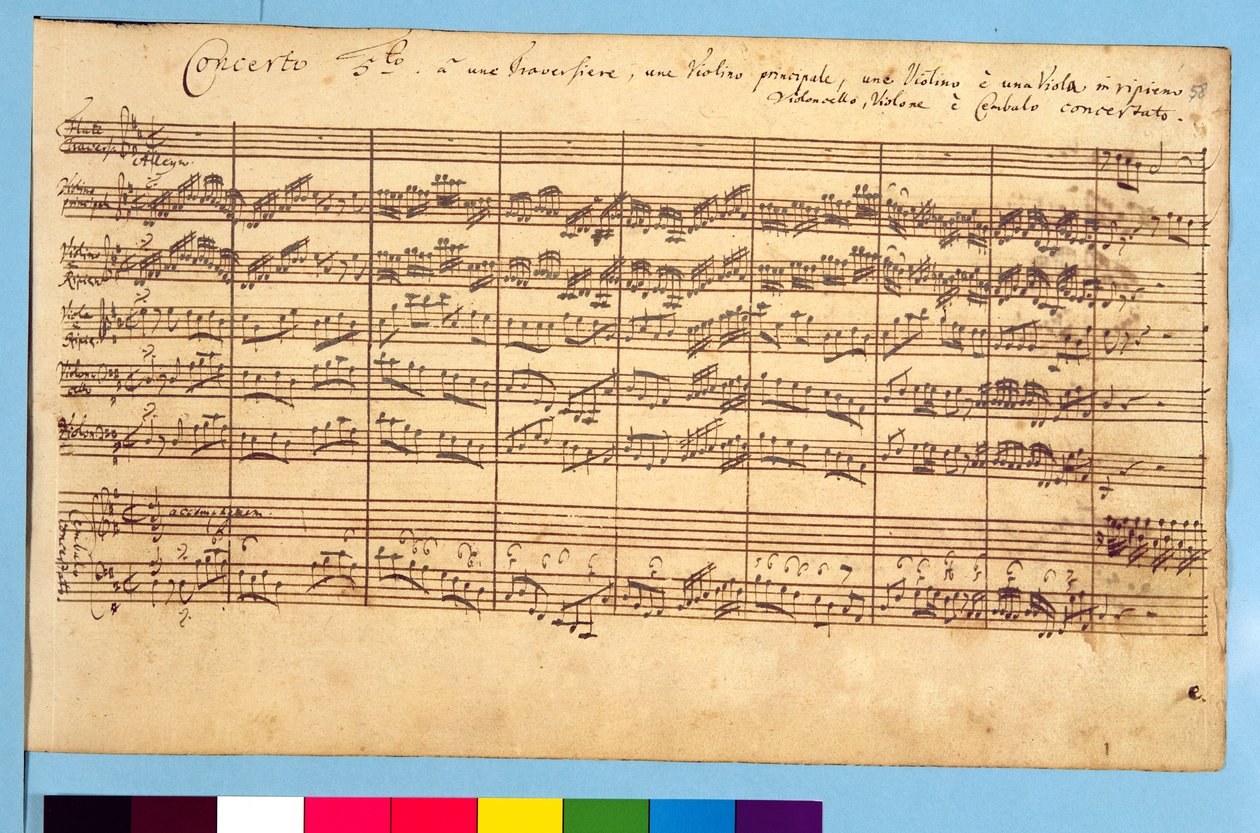 Concerto 5to. à une Traversiere, une Violino principale, une Violino è una Viola in ripieno
Violoncello, Violone è Cembalo concertato.
58
Traversf.
Allegro.
Violino
principale
Violino
Ripieno
Viola
Ripien.
Violone
accompagnem.
Cembalo
concertato.